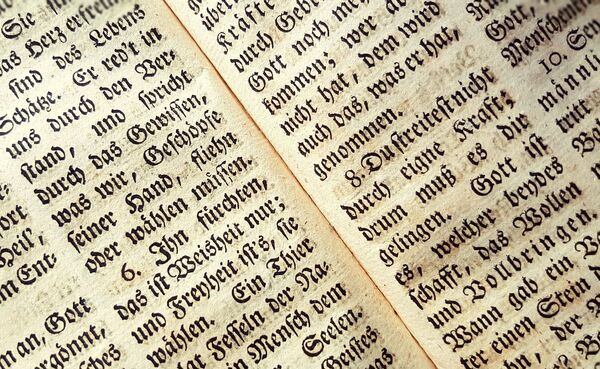 Sie
Herz
ſind des Lebens
Schätze. Er red't in
uns durch den Ver-
ſtand, und ſpricht
durch das Gewiſſen,
was wir, Geſchöpfe
ſeiner Hand, fliehn
oder wählen müſſen.
6. Ihn fürchten,
das iſt Weisheit nur;
und Freyheit iſt's, ſie
wählen. Ein Thier
Feſſeln der Na-
Menſch dem
Seelen.
Geiſtes
Gott
Kräfte
durch
Gott noch
kommen; wer
nicht hat, dem wird
auch das, was er hat,
genommen.
8. Du ſtreiteſt nicht
durch eigne Kraft;
drum muß es dir
gelingen. Gott iſt
es, welcher beydes
ſchafft, das Wollen
und Vollbringen.
Wann gab ein
einen Stein
Gott,
10.